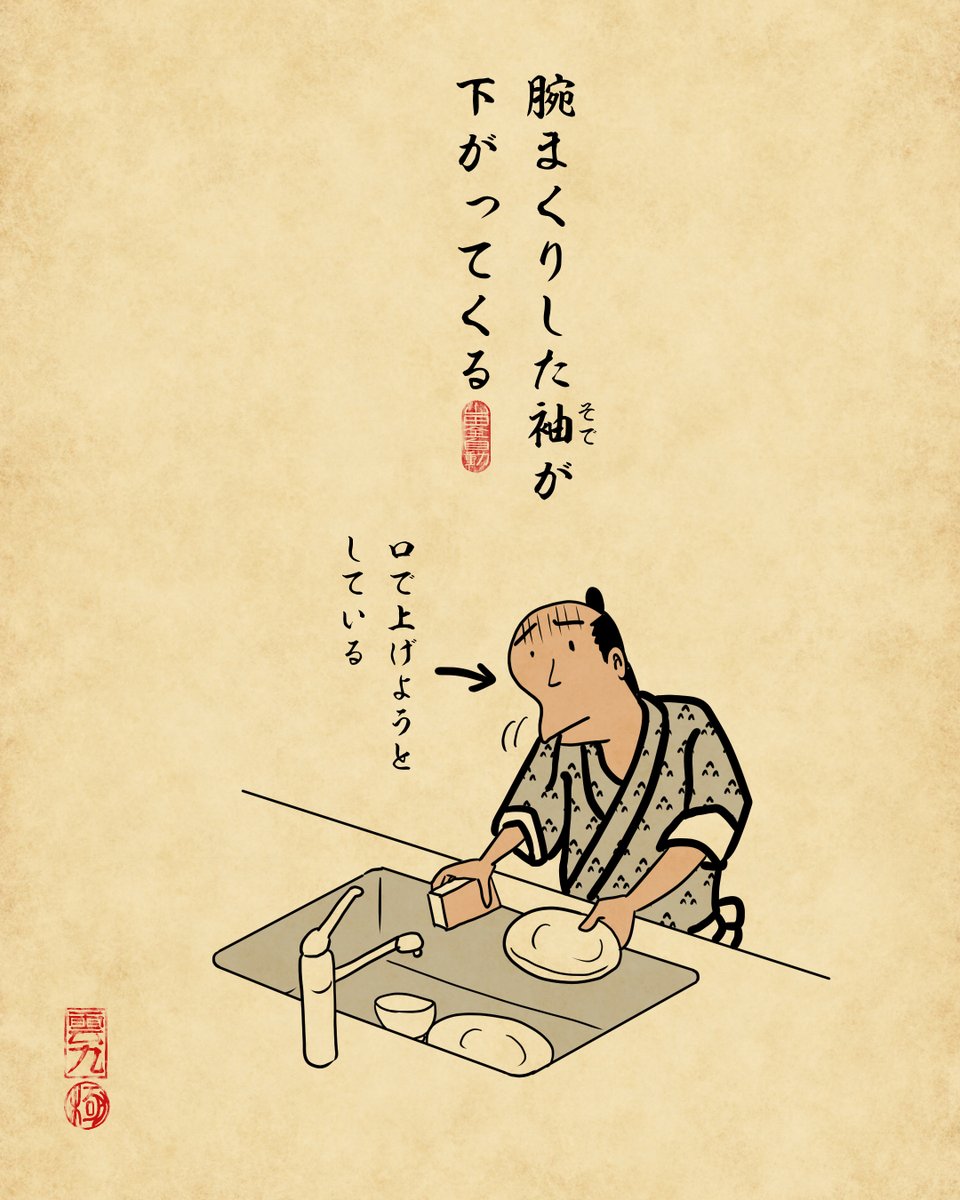 腕まくりした袖が
そで
下がってくる
口で上げようと
している